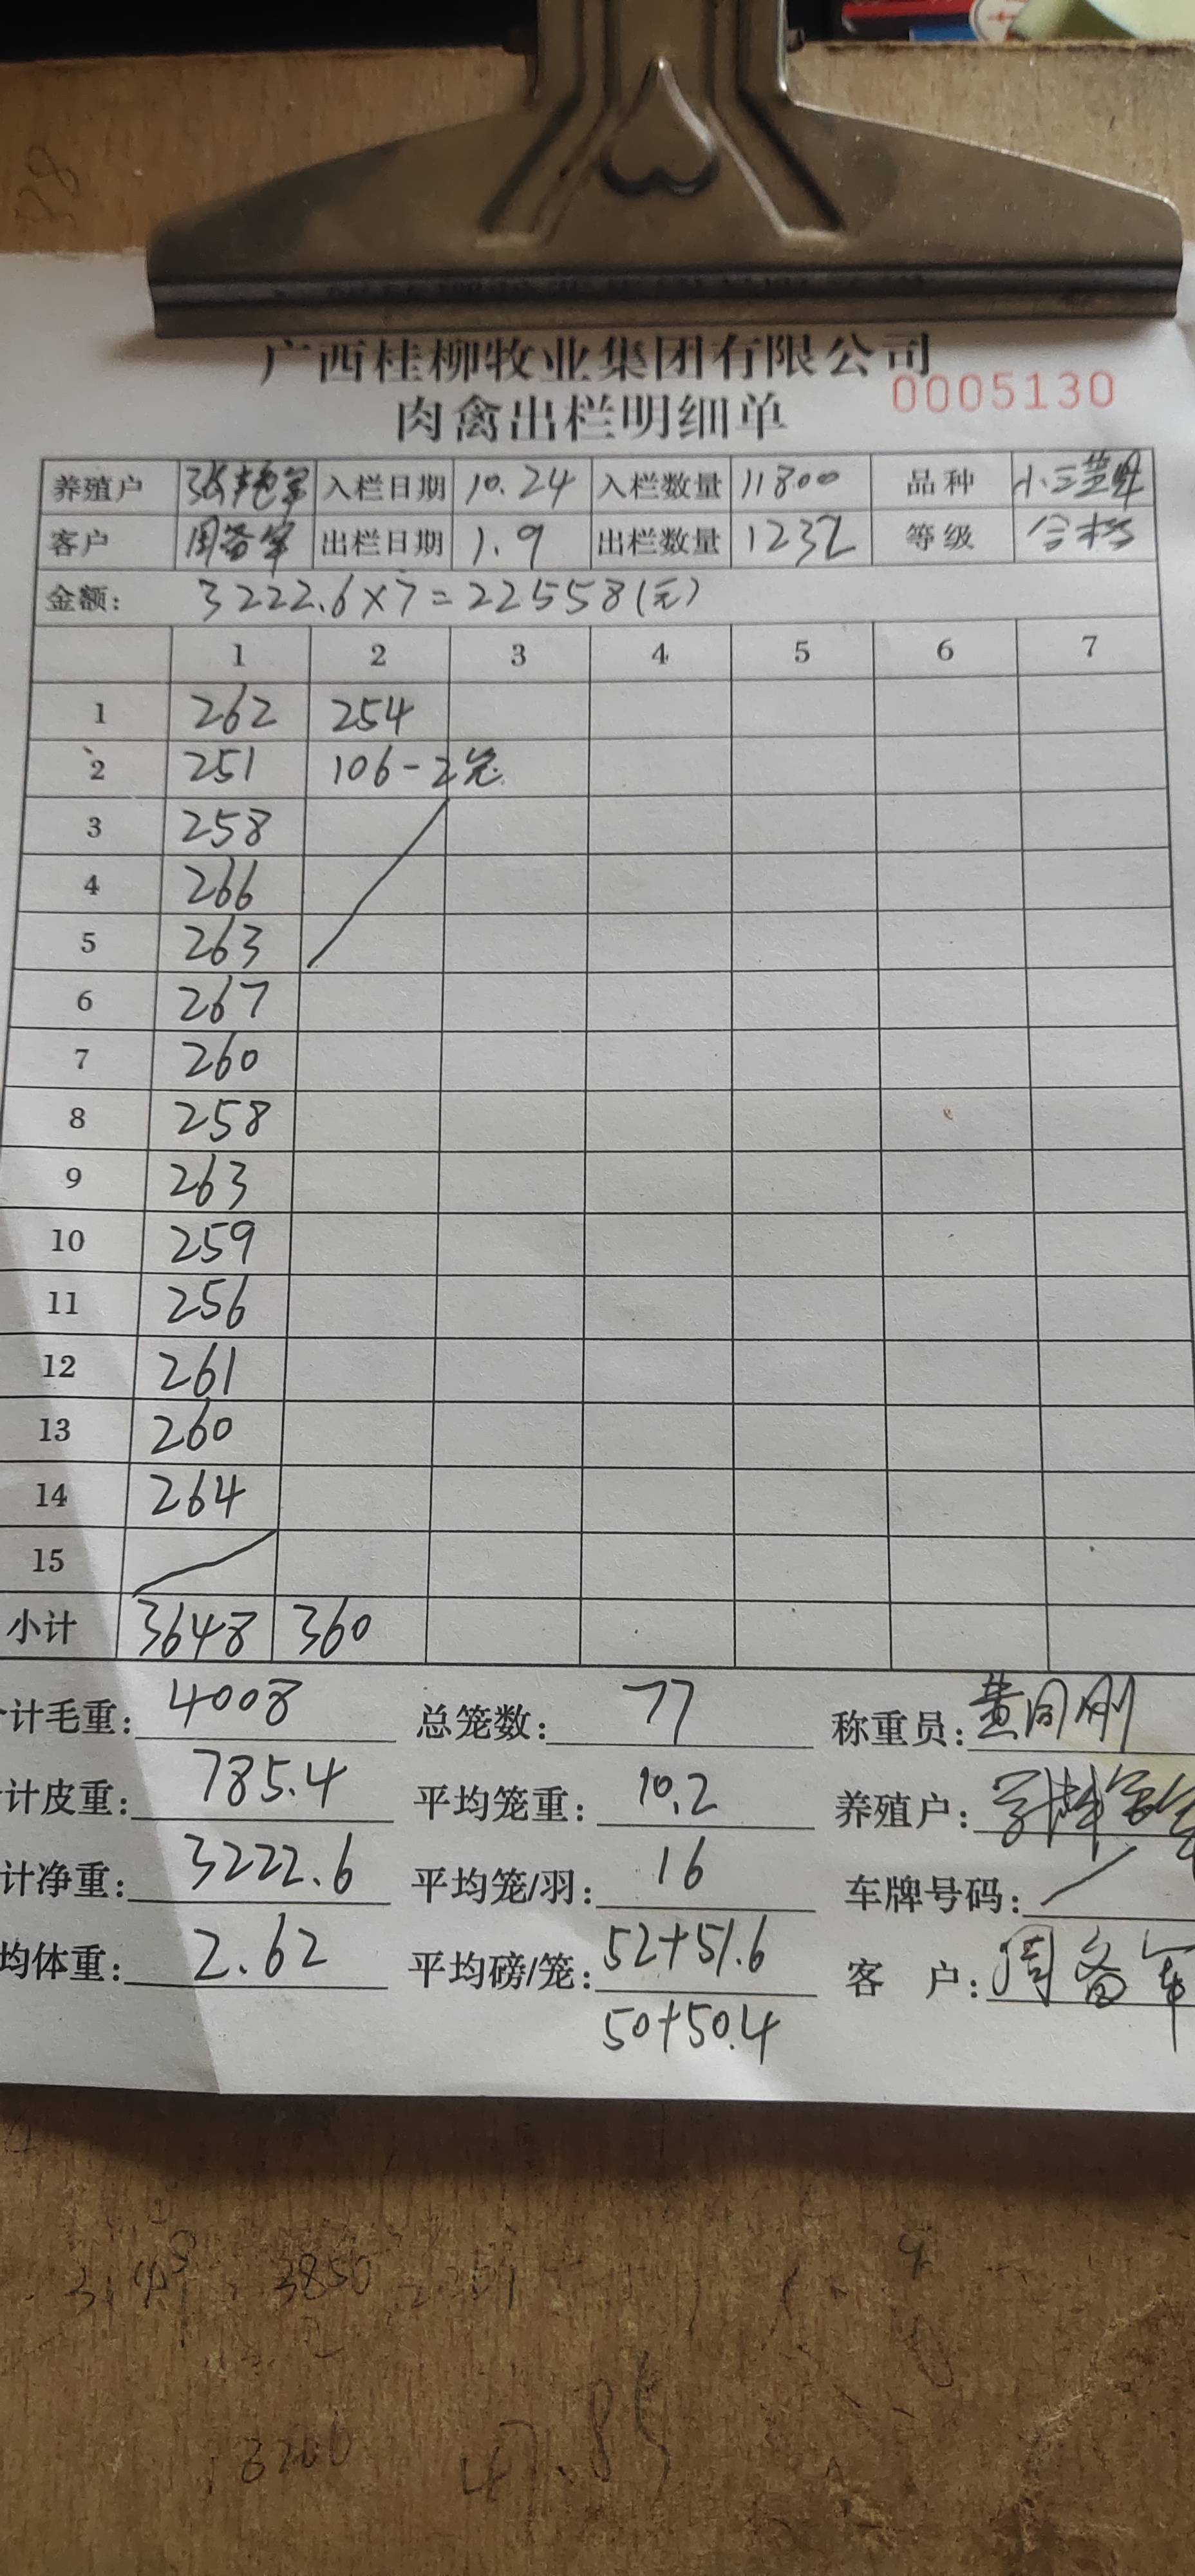 广西桂柳牧业集团有限公司
肉禽出栏明细单 0005130
养殖户 入栏日期 10.24 入栏数量 11800 品种
客户 周备军 出栏日期 1.9 出栏数量 1232 等级 合格
金额: 3222.6×7=22558(元)
1 2 3 4 5 6 7
1 262 254
2 251 106-2笼
3 258
4 266
5 263
6 267
7 260
8 258
9 263
10 259
11 256
12 261
13 260
14 264
15
小计 3648 360
计毛重: 4008 总笼数: 77 称重员:
计皮重: 785.4 平均笼重: 10.2 养殖户:
计净重: 3222.6 平均笼/羽: 16 车牌号码:
均体重: 2.62 平均磅/笼: 52+51.6 客 户: 周备军
50+50.4